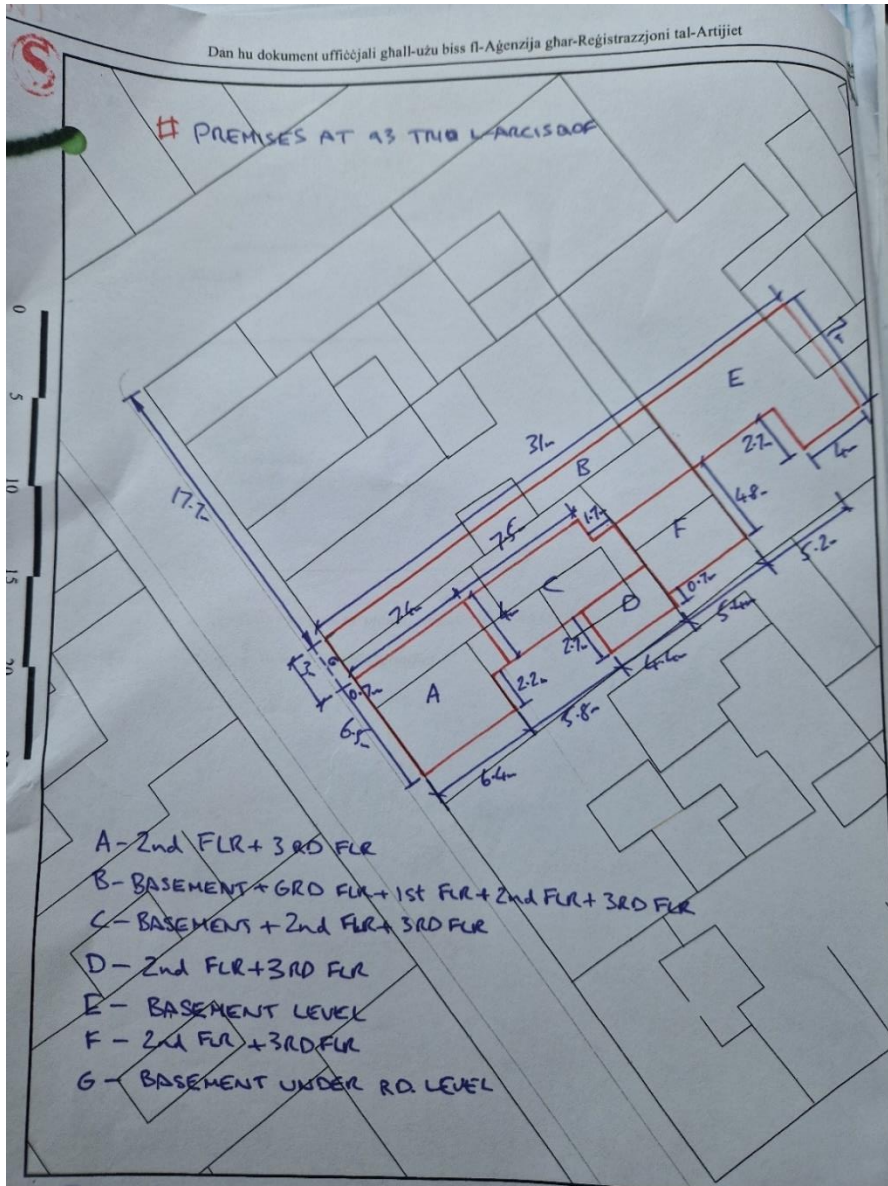 Dan hu dokument uffiċjali għall-użu biss fl-Aġenzija għar-Reġistrazzjoni tal-Artijiet
S
# PREMISES AT 93 TRIQ L-ARCISQOF
0
5
10
15
20
17.7m
31m
7m
E
2.7m
4m
B
1.7m
7.5m
4.8m
F
5.2m
7.4m
4m
C
0.7m
D
2.7m
5.4m
4.4m
3m
G
0.7m
A
2.2m
6.5m
5.8m
6.4m
A - 2nd FLR + 3RD FLR
B - BASEMENT + GRD FLR + 1st FLR + 2nd FLR + 3RD FLR
C - BASEMENT + 2nd FLR + 3RD FLR
D - 2nd FLR + 3RD FLR
E - BASEMENT LEVEL
F - 2nd FLR + 3RD FLR
G - BASEMENT UNDER RD. LEVEL